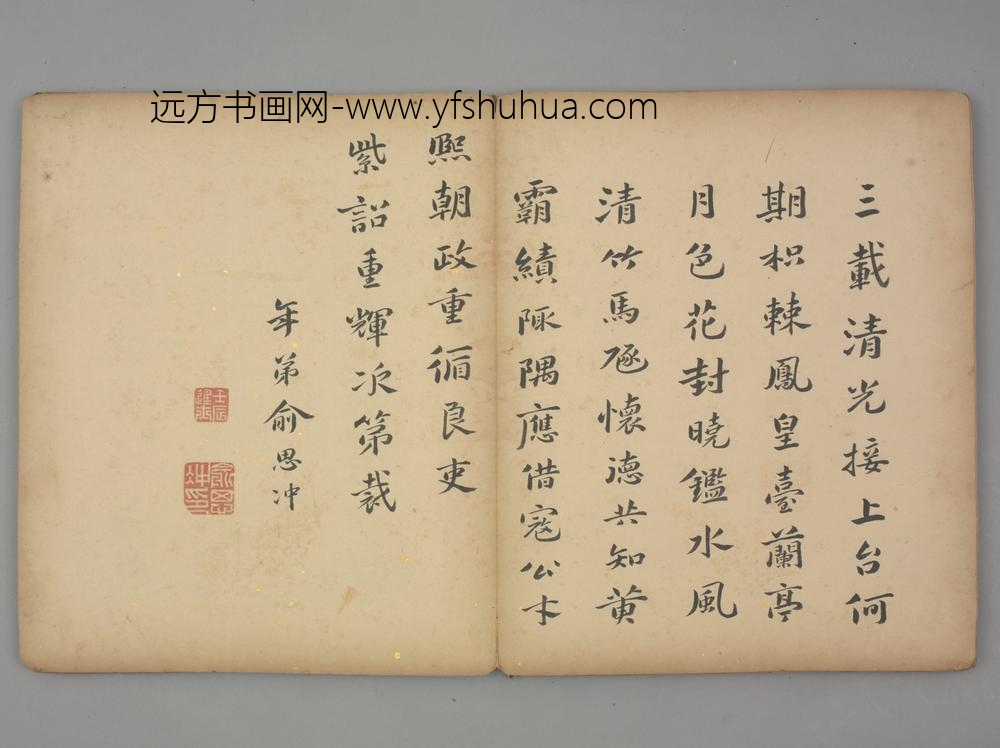 远方书画网-www.yfshuhua.com
三載清光接上台何
期枳棘鳳皇臺蘭亭
月色花封曉鑑水風
清竹馬逐懷德共知黄
霸績陬隅應借寇公才
熙朝政重循良吏
紫詔重輝次第裁
年弟俞思冲
壬辰進士
俞思冲印